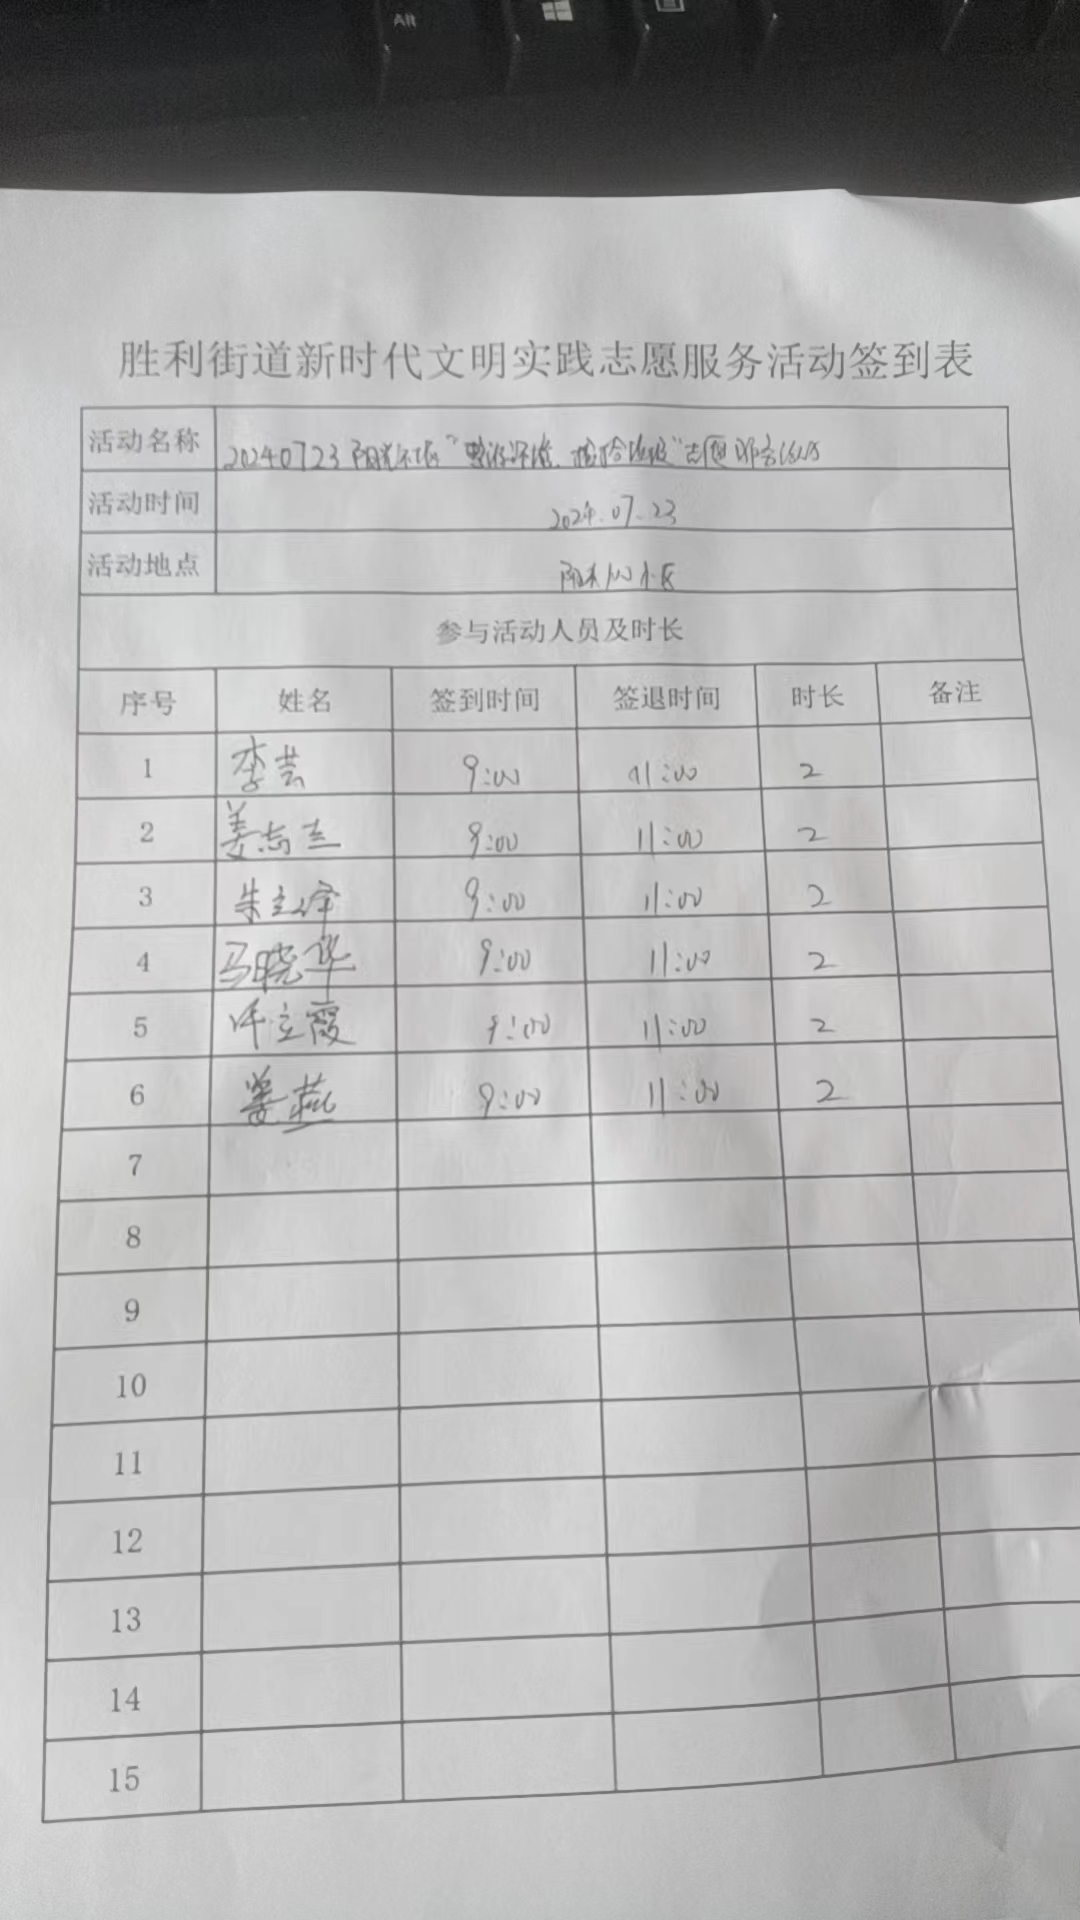 Alt
胜利街道新时代文明实践志愿服务活动签到表
活动名称 20240723 阳光社区“ 环境、捡拾垃圾”志愿服务活动
活动时间 2024.07.23
活动地点 小区
参与活动人员及时长
序号 姓名 签到时间 签退时间 时长 备注
1 李芸 9:00 11:00 2
2 姜志兰 9:00 11:00 2
3 朱立泽 9:00 11:00 2
4 马晓华 9:00 11:00 2
5 立霞 9:00 11:00 2
6 姜燕 9:00 11:00 2
7
8
9
10
11
12
13
14
15